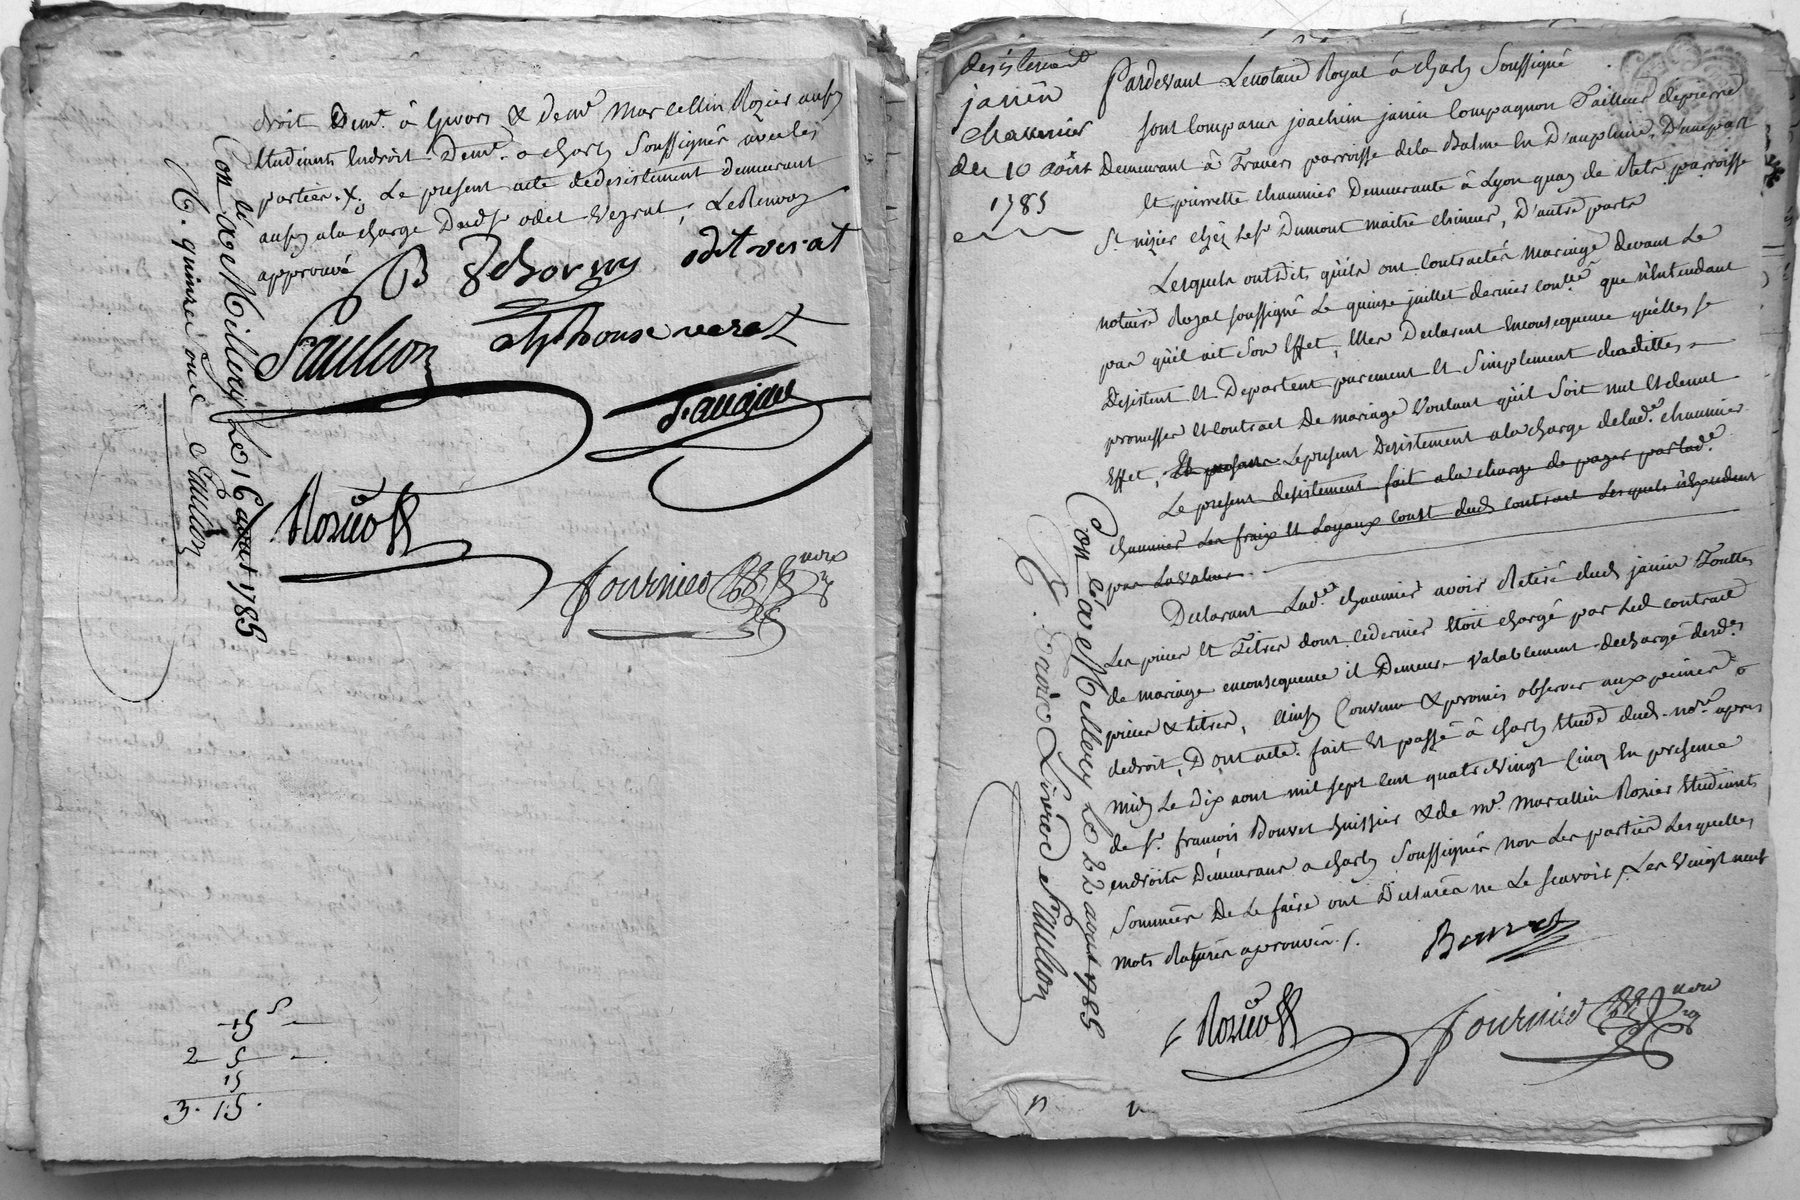 droit Demt. à Givors & de me. Marcellin Rozier aussy
Etudiants En droit Demt. a Charly Soussignés avec les
parties. X. Le present acte dedesistement demeurant
aussy ala charge Dud sr odet Veyrat, Le Renvoy
approuvé
odit verat
alphonse verat
Faullon
Rozier
Fournier nore
Conlé a Millery Le 1 Cavout 1785
R. quinze sous Faullon
15 s
2 5
15
3. 15.
desistement
janin
chaumier
du 10 août
1785
Pardevant Lenotaire Royal à Charly Soussigné
Sont Comparus joachim janin Compagnon Tailleur depierre
Demeurant à Travers parroisse dela Balme En D'auphiné, D'une part
Et pierrette chaumier Demeurante à Lyon quay de Retz parroisse
St. nizier chéz Le sr Dumont maitre chineur, D'autre parts
Lesquels ont dits qu'ils ont Contractés mariage devant Le
notaire Royal soussigné Le quinze juillet dernier contlé. que n'Entendant
par qu'il ait Son Effet, Elles Declarent Enconsequence qu'elles se
Desistent Et Departent purement Et Simplement desdittes
promesses Et contract De mariage Voulant qu'il Soit nul Et de nul
Effet, Le present Desistement ala charge de lade. chaumier
Le present desistement fait ala charge de payer par lade.
chaumier Les fraix Et Loyaux Coust dud contract Lesquels
par
Declarant Lade. chaumier avoir Retiré dud janin Touttes
Les pieces Et Titres dont cedernier Etoit chargé par Led contract
de mariage enconsequence il Demeure Valablement dechargé desdes
pieces & titres, Ainsy Convenu & promis observer aux peines
dedroit, Dont acte. fait Et passé à Charly Etude dud. nore. apres
midy Le Dix aout mil sept cent quatre Vingt Cinq En presence
de sr. françois Bouvet huissier & de me. Marcellin Rozier Etudiant
endroits Demeurans a Charly Soussignés non Les parties Lesquelles
Sommées De Le faire ont Declarées ne Le Scavoir, Les Vingt neuf
mots Raturés aprouvés /.
Bouvet
Rozier
Fournier nore
Conlé a Millery Le 22 aout 1785
R. Trois Livres Faullon